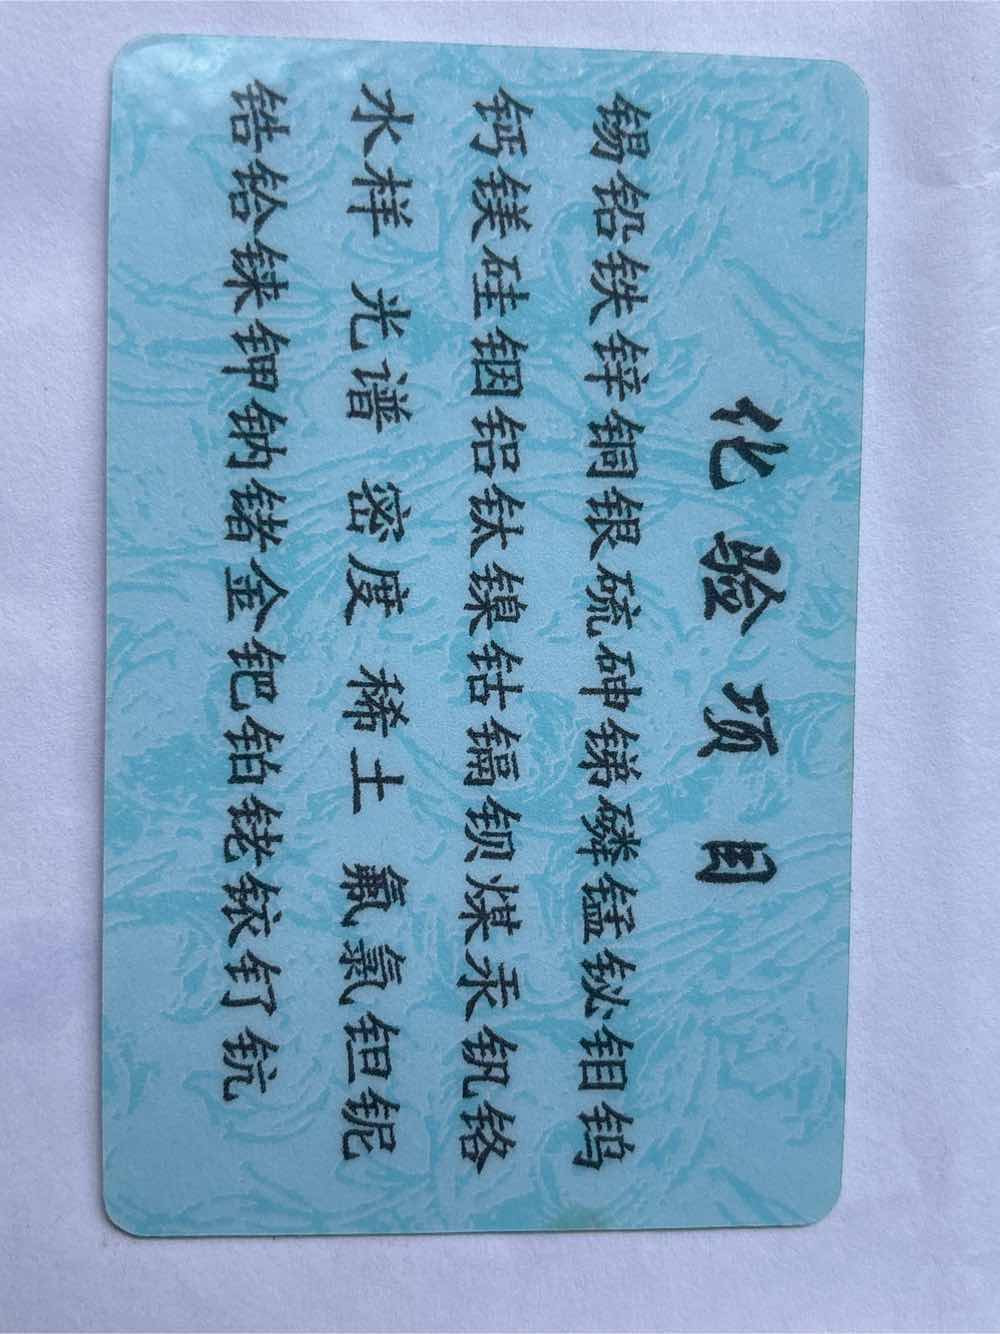 化验项目
锡铅铁锌铜银硫砷锑磷锰铋钼钨
钙镁硅铟铝钛镍钴镉钡煤汞钒铬
水样 光谱 密度 稀土 氟氯钽铌
锆铪铼钾钠锗金钯铂铑铱钌钪